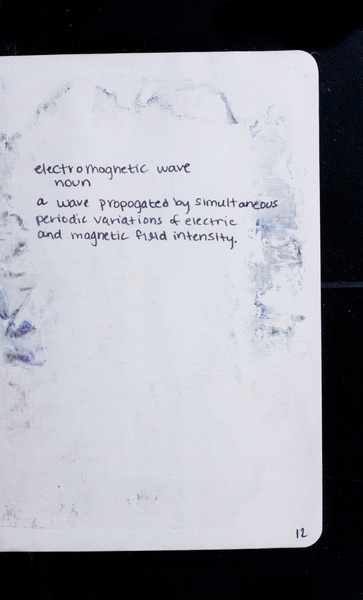 electromagnetic wave
noun
a wave propogated by simultaneous
periodic variations of electric
and magnetic field intensity.
12